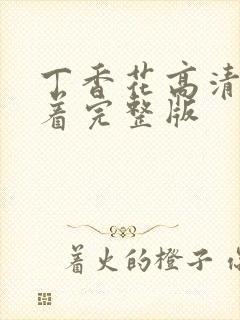 丁香花高清
着完整版
着火的橙子 你